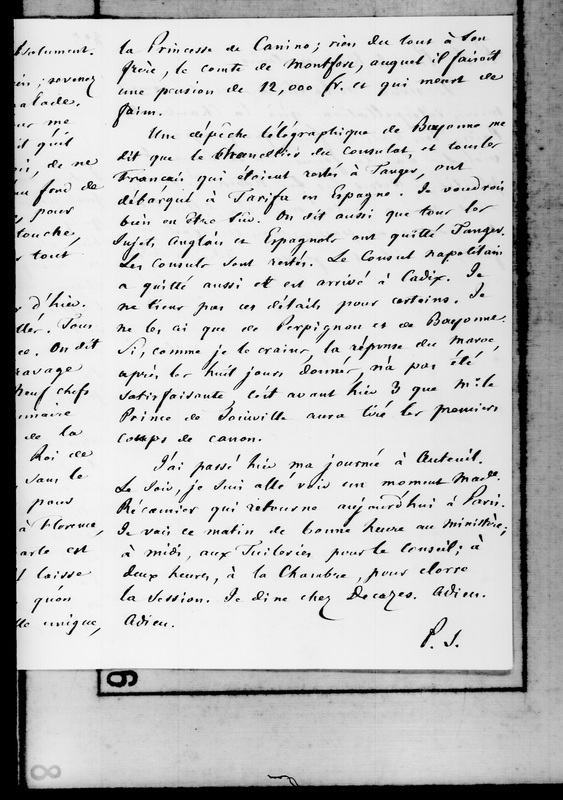 bsolument.
revenez
alade.
ur me
it qu'il
de ne
au fond de
pour
touche,
tout
d'hier.
Tous
On dit
ravage
neuf chefs
de la
Roi de
dans le
pour
à Florence,
est
laisse
qu'on
unique,
la Princesse de Canino ; rien du tout à son
frère, le comte de Montfort, auquel il faisoit
une pension de 12,000 fr. et qui meurt de
faim.
Une dépêche télégraphique de Bayonne me
dit que le Chancelier du Consulat, et tous les
Français qui étoient restés à Tanger, ont
débarqué à Tarifa en Espagne. Je voudrois
bien en être sûr. On dit aussi que tous les
sujets Anglais et Espagnols ont quitté Tanger.
Les Consuls sont restés. Le Consul napolitain
a quitté aussi et est arrivé à Cadix. Je
ne tiens pas ces détails pour certains. Je
ne les ai que de Perpignan et de Bayonne.
Si, comme je le crains, la réponse du Maroc,
après les huit jours donnés, n'a pas été
satisfaisante, c'est avant hier 3 que Mr le
Prince de Joinville aura tiré les premiers
coups de canon.
J'ai passé hier ma journée à Auteuil.
Le soir, je suis allé voir un moment Made
Récamier qui retourne aujourd'hui à Paris.
Je vais ce matin de bonne heure au ministère ;
à midi, aux Tuileries pour le Conseil ; à
deux heures, à la Chambre, pour clorre
la Session. Je dine chez Decazes. Adieu.
Adieu.
P. S.
6
8